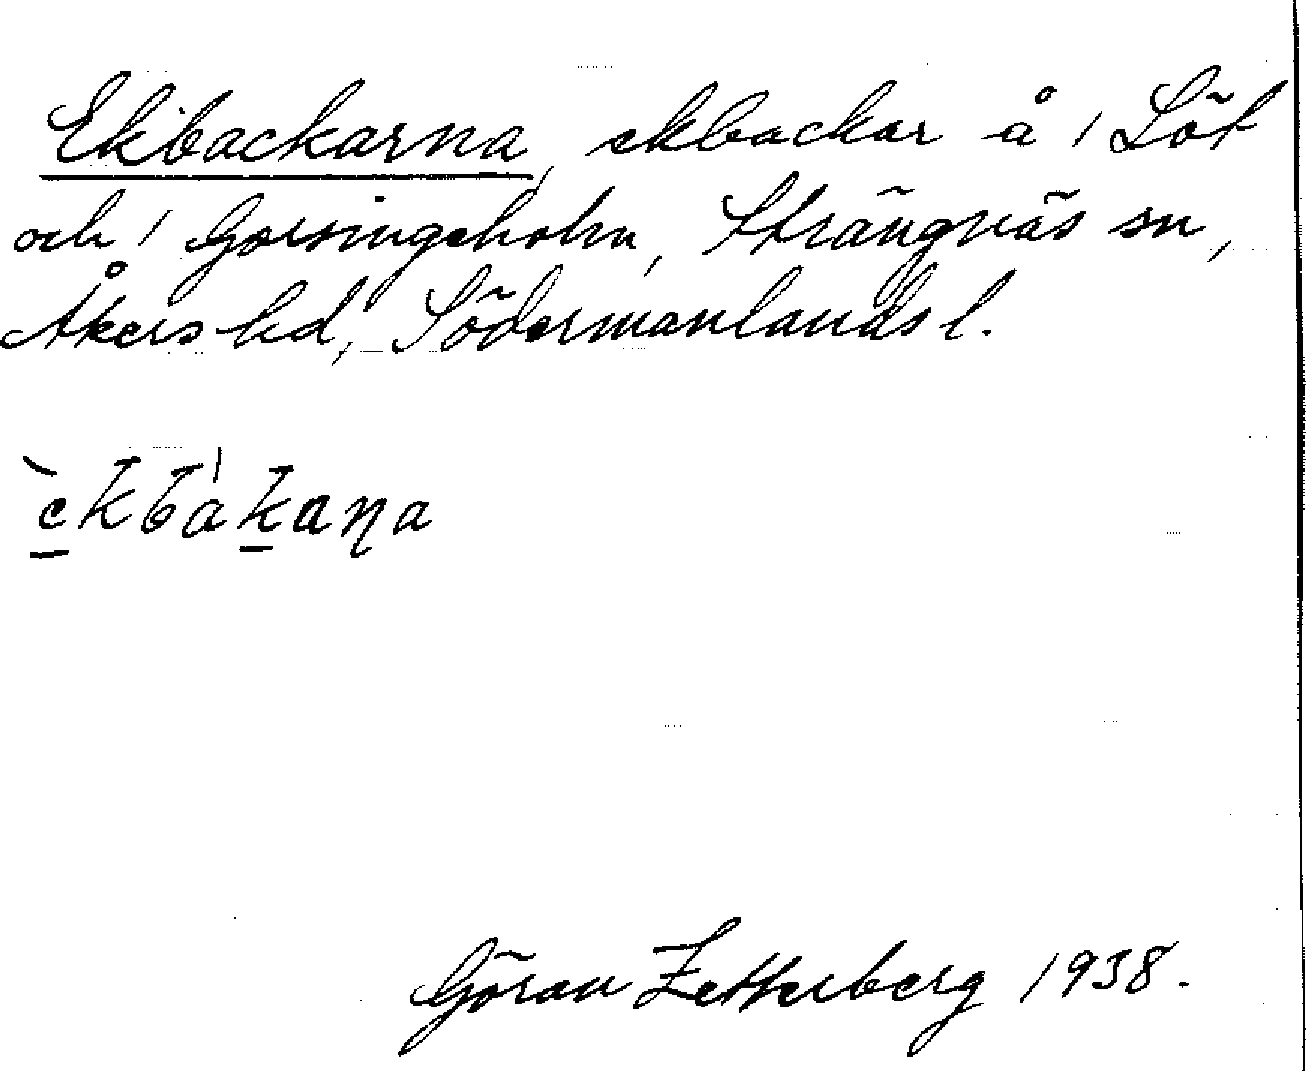 Ekbackarna, ekbackar å 1 Löt
och 1 Gorsingeholm, Strängnäs sn,
Åkers hd, Södermanlands l.
èkbákaṇa
Göran Zetterberg 1938.